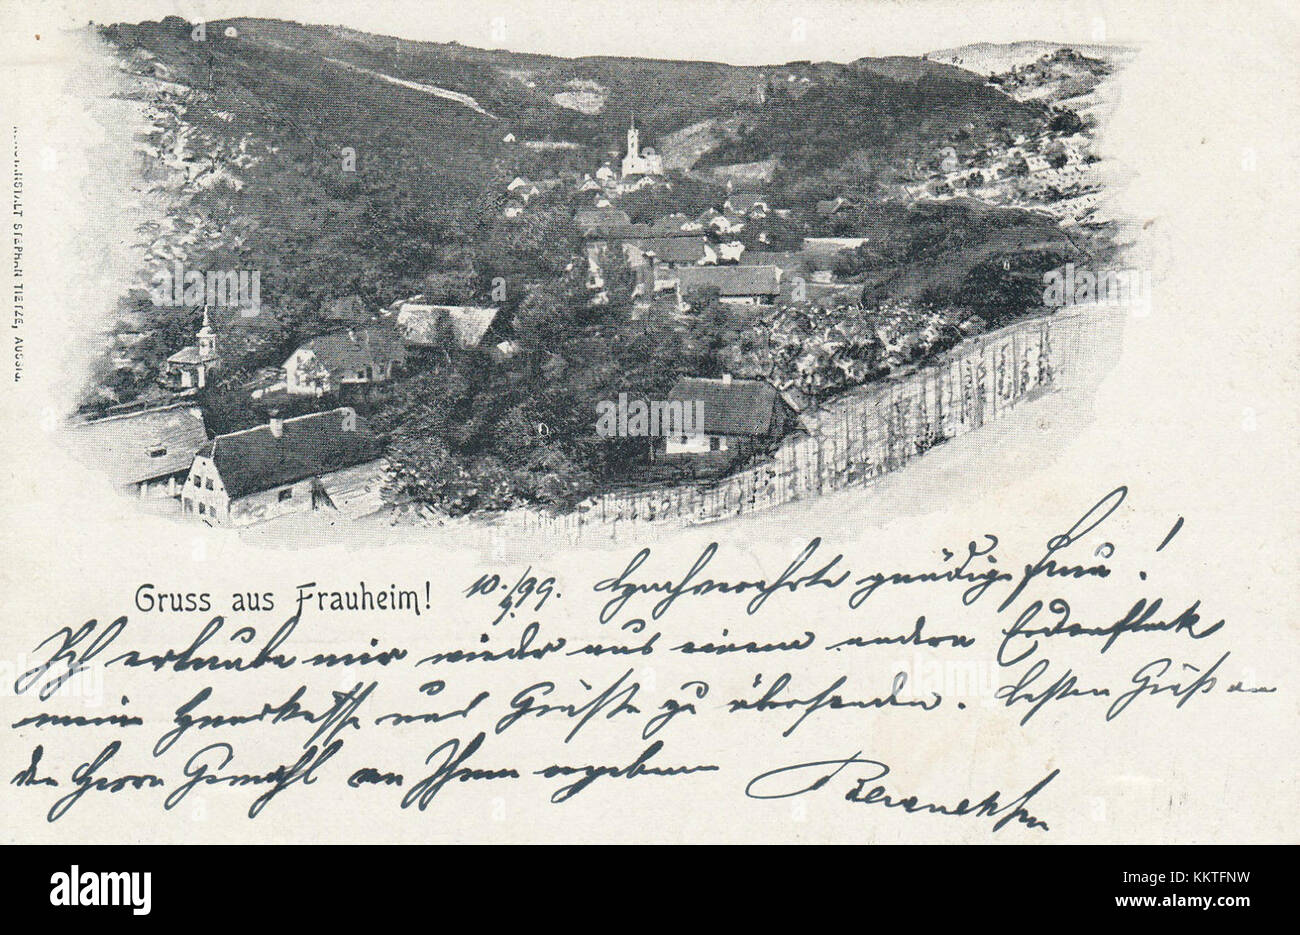 KUNSTANSTALT STEPHAN TIETZE, AUSSIG.
Gruss aus Frauheim! 10./9.99. Hochverehrte gnädige Frau!
Ich erlaube mir wieder aus einem andern Erdenfleck
meine Handküsse und Grüße zu übersenden. Besten Gruß an
den Herrn Gemahl von Ihrem ergebenen
alamy
alamy
Image ID: KKTFNW
www.alamy.com